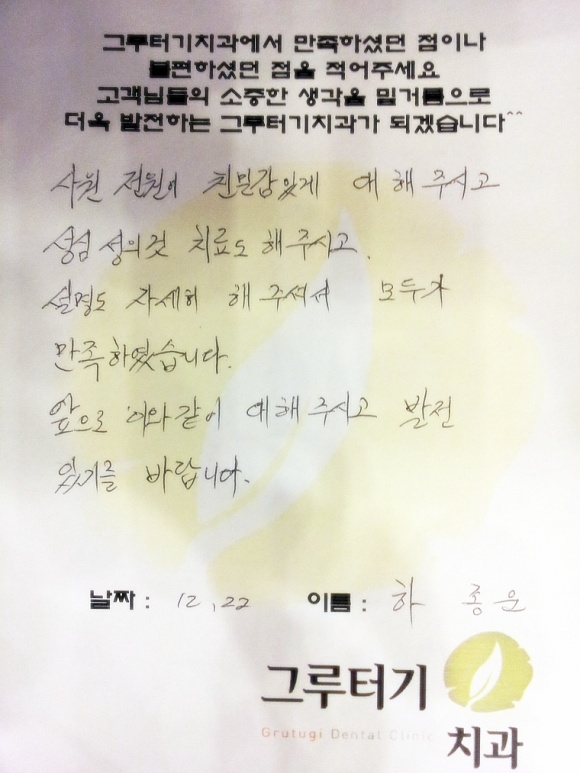 그루터기치과에서 만족하셨던 점이나
불편하셨던 점을 적어주세요
고객님들의 소중한 생각을 밑거름으로
더욱 발전하는 그루터기치과가 되겠습니다^^
사원 전원이 친밀감있게 대해 주시고
성심 성의것 치료도 해주시고.
설명도 자세히 해 주셔서 모두가
만족하였습니다.
앞으로 이와같이 대해 주시고 발전
있기를 바랍니다.
날짜 : 12, 22 이름 : 하 종 운
그루터기
Grutugi Dental Clinic
치과